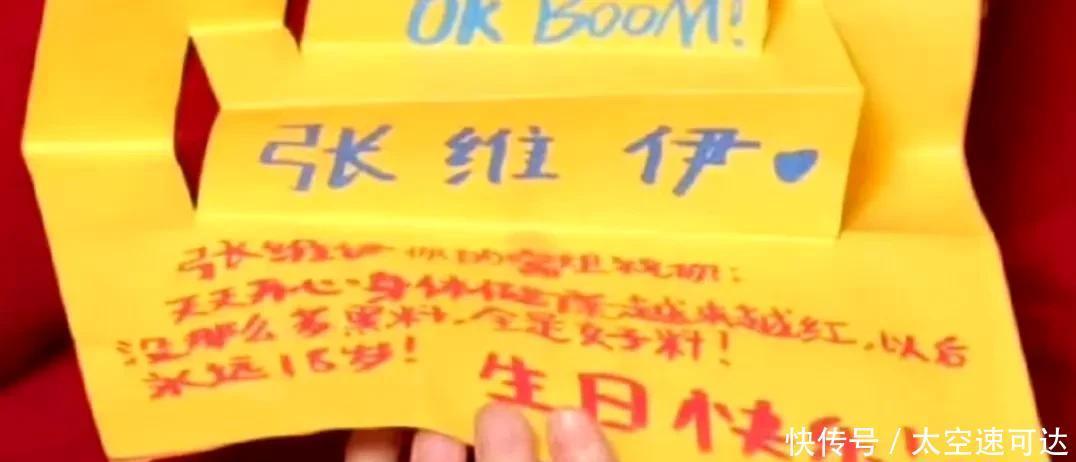 OK BOOM!
张维伊
张维伊 你的 祝你:
天天开心 身体健康 越来越红,以后
没那么多黑料,全是好料!
永远18岁!
生日快乐
快传号/太空速可达